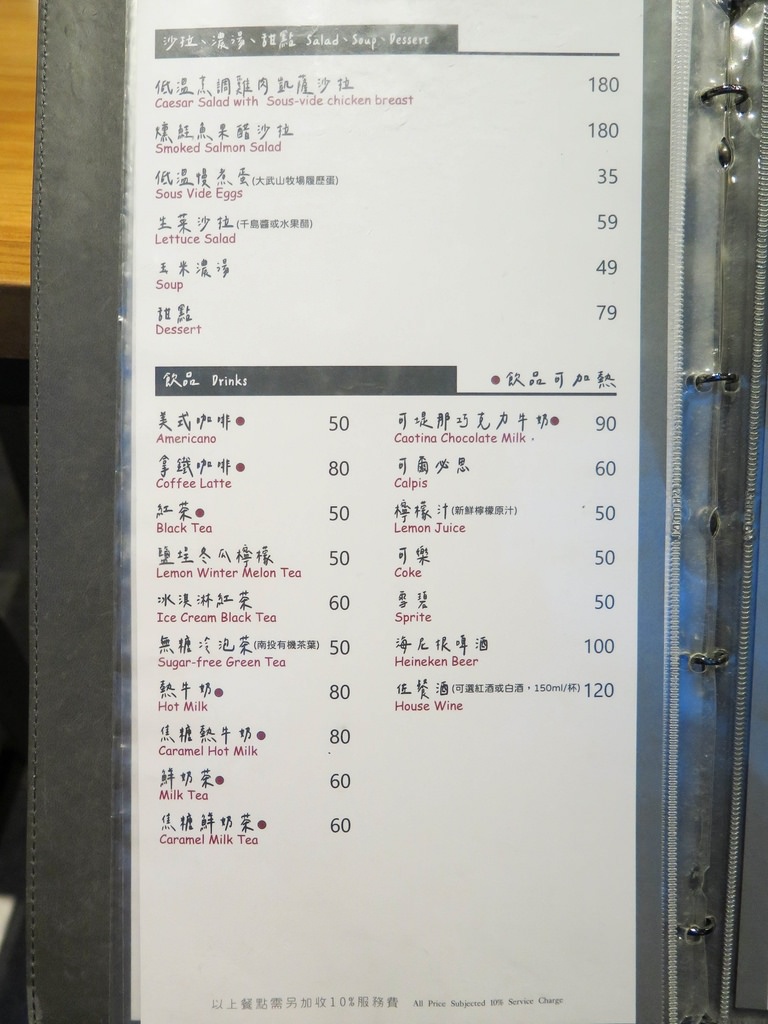 沙拉、濃湯、甜點 Salad、Soup、Dessert
低溫烹調雞肉凱薩沙拉 180
Caesar Salad with Sous-vide chicken breast
燻鮭魚果醋沙拉 180
Smoked Salmon Salad
低溫慢煮蛋(大武山牧場履歷蛋) 35
Sous Vide Eggs
生菜沙拉(千島醬或水果醋) 59
Lettuce Salad
玉米濃湯 49
Soup
甜點 79
Dessert
飲品 Drinks
●飲品可加熱
美式咖啡● 50
Americano
拿鐵咖啡● 80
Coffee Latte
紅茶● 50
Black Tea
鹽埕冬瓜檸檬 50
Lemon Winter Melon Tea
冰淇淋紅茶 60
Ice Cream Black Tea
無糖冷泡茶(南投有機茶葉) 50
Sugar-free Green Tea
熱牛奶● 80
Hot Milk
焦糖熱牛奶● 80
Caramel Hot Milk
鮮奶茶● 60
Milk Tea
焦糖鮮奶茶● 60
Caramel Milk Tea
可堤那巧克力牛奶● 90
Caotina Chocolate Milk
可爾必思 60
Calpis
檸檬汁(新鮮檸檬原汁) 50
Lemon Juice
可樂 50
Coke
雪碧 50
Sprite
海尼根啤酒 100
Heineken Beer
佐餐酒(可選紅酒或白酒，150ml/杯) 120
House Wine
以上餐點需另加收10%服務費 All Price Subjected 10% Service Charge